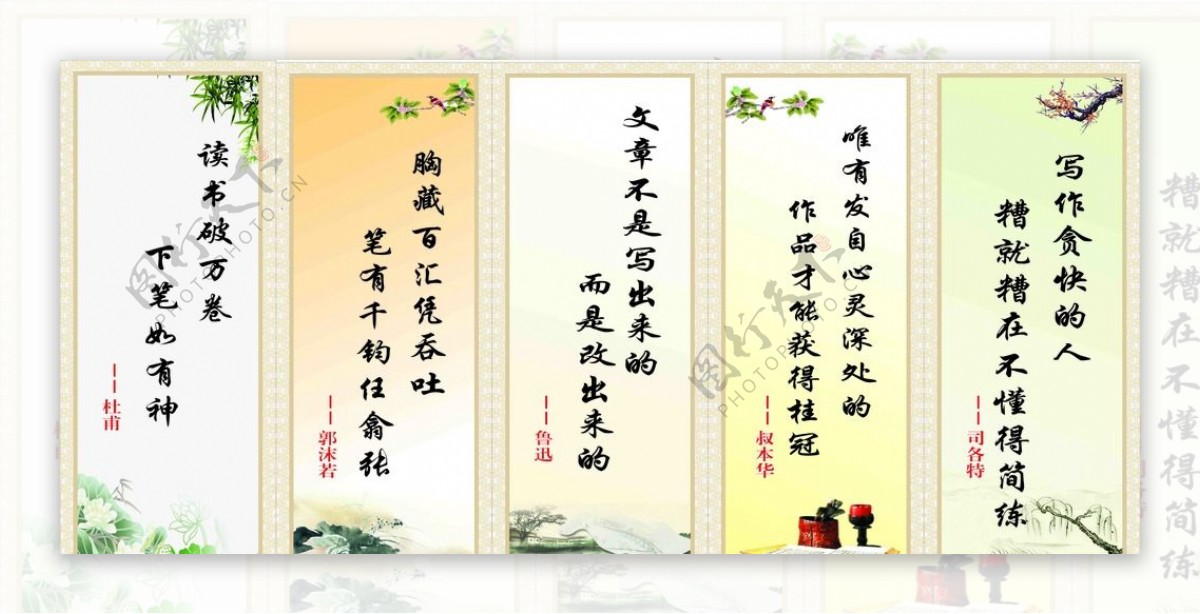 读书破万卷
下笔如有神
——杜甫
胸藏百汇凭吞吐
笔有千钧任翕张
——郭沫若
文章不是写出来的
而是改出来的
——鲁迅
唯有发自心灵深处的
作品才能获得桂冠
——叔本华
写作贪快的人
糟就糟在不懂得简练
——司各特
糟就糟在不懂得简练
图行天下
PHOTOPHOTO.CN
图行天下
PHOTOPHOTO.CN